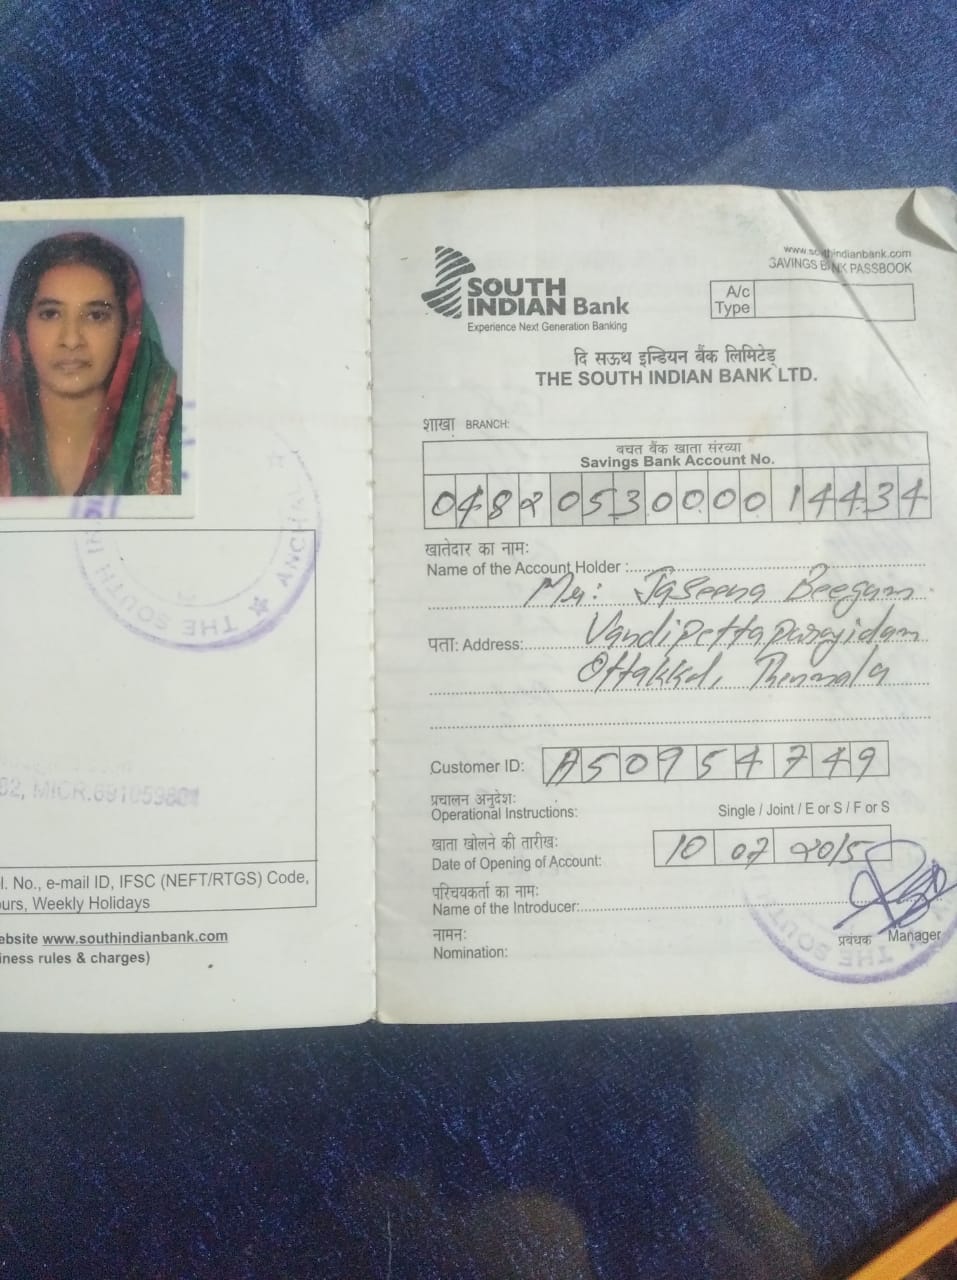 62, MICR.691059801
l. No., e-mail ID, IFSC (NEFT/RTGS) Code,
ours, Weekly Holidays
ebsite www.southindianbank.com
iness rules & charges)
ANCHAL ★ THE SOUTH IN
www.southindianbank.com
SAVINGS BANK PASSBOOK
SOUTH
INDIAN Bank
Experience Next Generation Banking
A/c
Type
दि सऊथ इन्डियन बैंक लिमिटेड
THE SOUTH INDIAN BANK LTD.
शाखा BRANCH:
बचत बैंक खाता संख्या
Savings Bank Account No.
0482053000014434
खातेदार का नाम:
Name of the Account Holder :
Jaseena Beegam
पता: Address: Vandipettaparayidam
Ottakkal, Thenmala
Customer ID: A50954749
प्रचालन अनुदेश:
Operational Instructions: Single / Joint / E or S / F or S
खाता खोलने की तारीख:
Date of Opening of Account: 10 07 2015
परिचयकर्ता का नाम:
Name of the Introducer:
प्रबंधक Manager
नामन:
Nomination:
THE SOUTH